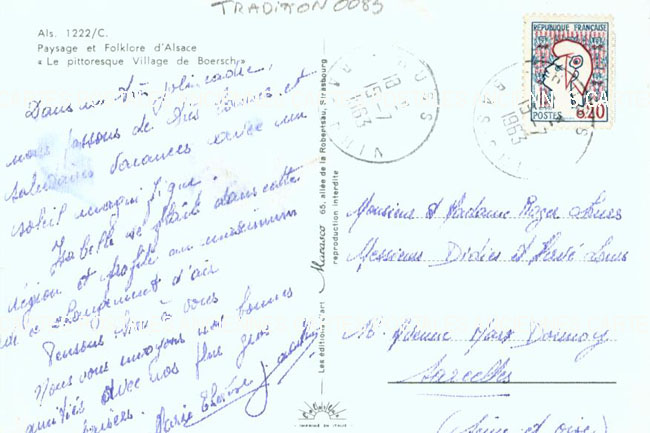 TRADITION0085
Als. 1222/C.
Paysage et Folklore d'Alsace
« Le pittoresque Village de Boersch »
Dans un très joli cadre,
nous passons de très bonnes et
salutaires vacances avec un
soleil magnifique.
Isabelle se plaît dans cette
région et profite au maximum
de ce changement d'air
Pensons bien à vous
Nous vous envoyons nos bonnes
amitiés avec nos plus gros
baisers. Marie Thérèse
Les éditions d'art Murasco 65, allée de la Robertsau, Strasbourg
reproduction interdite
IMPRIMÉ EN ITALIE
18 H
15-7
1963
RUSS
REPUBLIQUE FRANÇAISE
POSTES 0,20
15-7
1963
Monsieur et Madame Roger
Messieurs Didier et Hervé
18 Avenue Marx Dormoy
Sarcelles
(Seine et Oise)